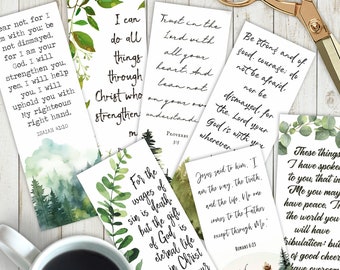 ear not for I
am with you be
not dismayed,
for I am your
God I will
strengthen you,
yes, I will help
you, I will
uphold you with
My righteous
right hand.
ISAIAH 41:10
I can
do all
things
through
Christ who
strengthens
me
Trust in the
Lord with
all your
heart, And
lean not
on your own
understandin
Proverbs
3:5
Be strong and of
good courage; do
not be afraid,
nor be
dismayed, for
the Lord your
God is with
you
wherever
For the
wages of
sin is death
but the gift
of God is
eternal life
in Christ
Jesus said to him, "I
am the way, the truth,
and the life. No one
comes to the Father
except through Me."
ROMANS 6:23
These things
I have spoken
to you, that in
Me you may
have peace. In
the world you
will have
tribulation; but
of good cheer
I have